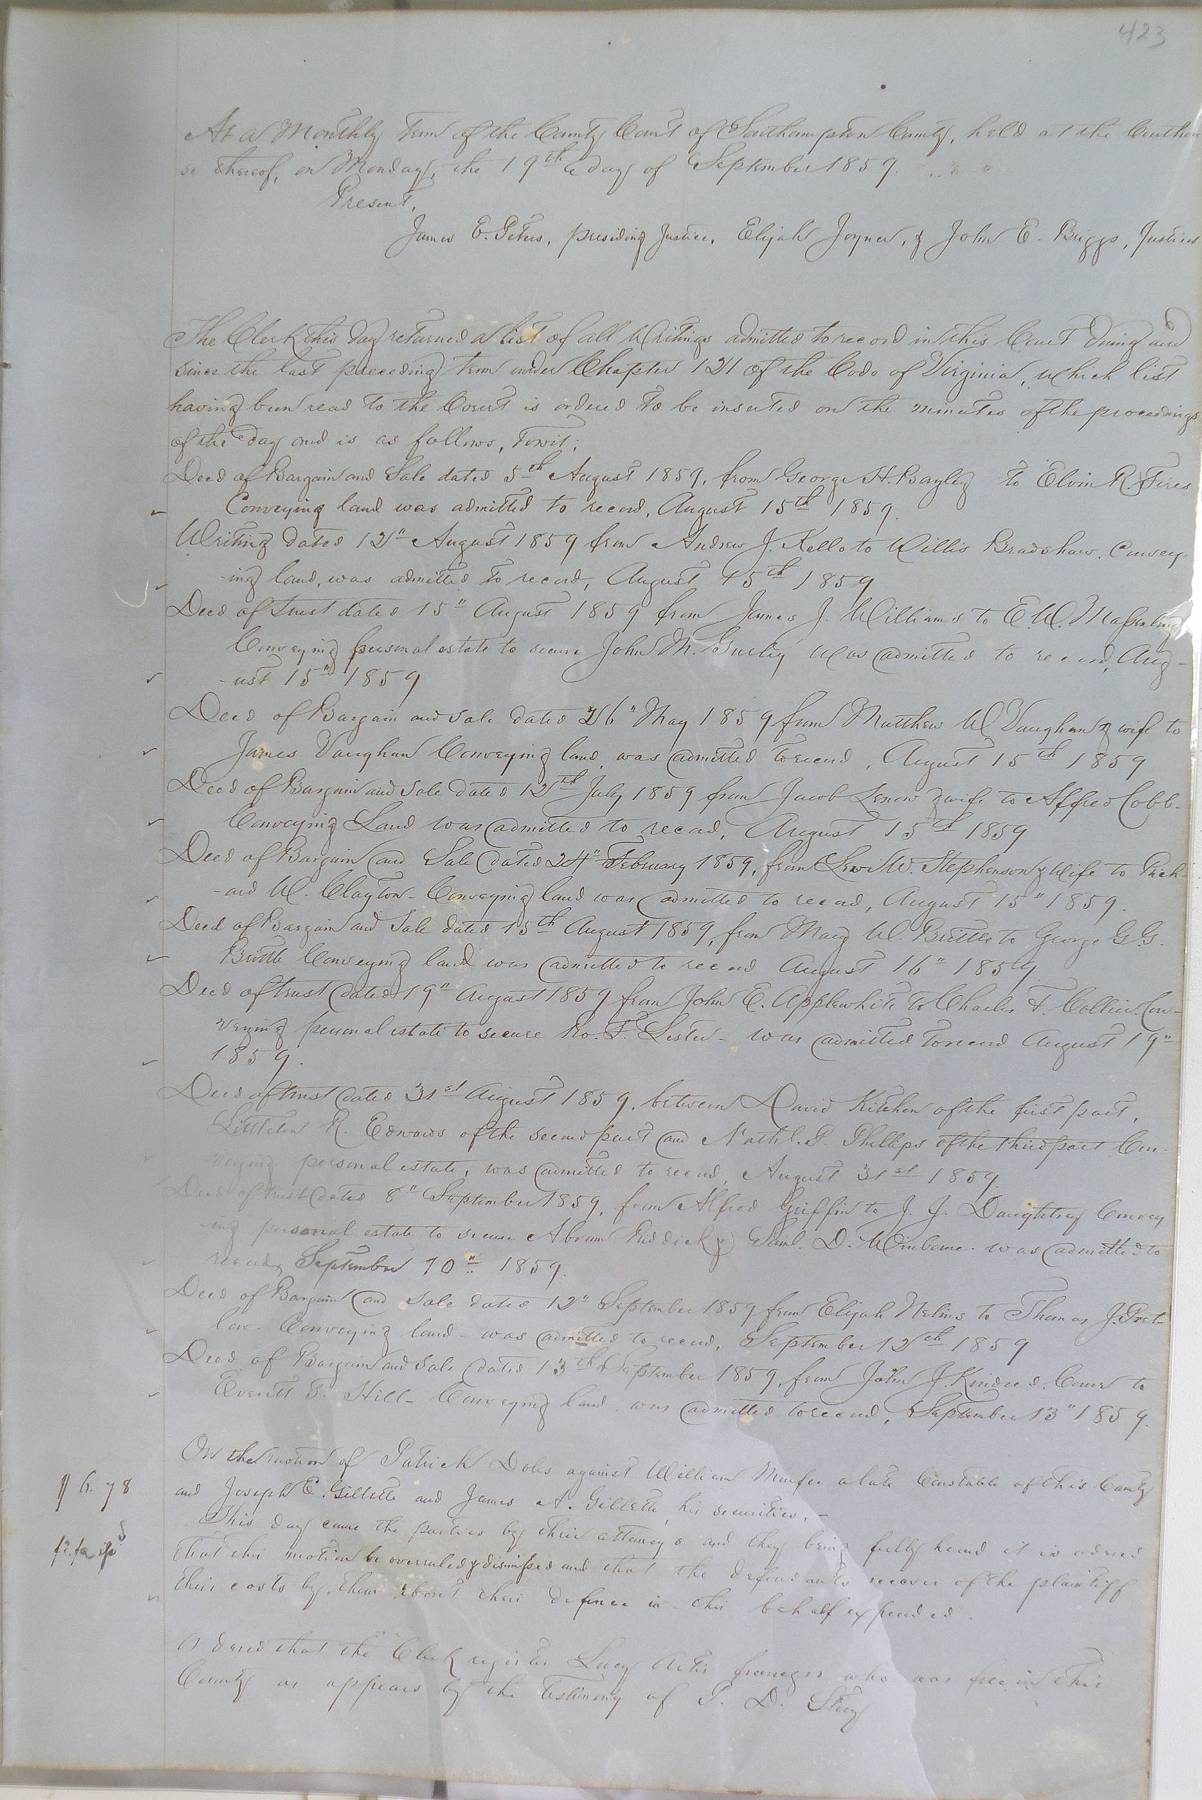 423
At a Monthly Term of the County Court of Southampton County, held at the Courthou
se thereof, on Monday, the 19th day of September 1859.
Present,
James E. Peters, presiding Justice, Elijah Joyner, & John E. Briggs, Justices
The Clerk this day returned a list of all Writings admitted to record in this Court during and
since the last preceding term under Chapter 121 of the Code of Virginia, which list
having been read to the Court is ordered to be inserted on the minutes of the proceedings
of the day and is as follows, Towit;
Deed of Bargain and Sale dated 5th August 1859, from George H. Bayley to Elvin R.
Conveying land was admitted to record, August 15th 1859.
Writing dated 12" August 1859 from Andrew J. Kello to Willis Bradshaw. Convey-
-ing land, was admitted to record, August 15th 1859
Deed of Trust dated 15" August 1859 from James J. Williams to E. W.
Conveying personal estate to secure John M. Gurley was admitted to record, Aug-
-ust 15th 1859
Deed of Bargain and Sale dated 26" May 1859 from Matthew W Vaughan & wife to
James Vaughan Conveying land, was admitted to record, August 15th 1859
Deed of Bargain and Sale dated 12th July 1859 from Jacob Lenow & wife to Alfred Cobb-
Conveying Land was admitted to record, August 15th 1859
Deed of Bargain and Sale dated 24" February 1859, from Levi W. Stephenson & Wife to
W. Clayton - Conveying land was admitted to record, August 15" 1859.
Deed of Bargain and Sale dated 15th August 1859, from Mary W. Brittle to George G. G.
Brittle Conveying land was admitted to record August 16" 1859
Deed of trust dated 19" August 1859 from John E. Applewhite to Charles F. Collier Con-
veying personal estate to secure Ro. F. Lester - was admitted to record August 19"
1859.
Deed of trust dated 31st August 1859, between David Kitchen of the first part,
Littleton R. Edwards of the second part and Nathl. P. Phillips of the third part Con-
veying personal estate, was admitted to record, August 31st 1859
Deed of trust dated 8" September 1859, from Alfred Griffin to J. J. Daughtrey Convey
-ing personal estate to secure Abram Riddick & Saml. D. Winborne was admitted to
record, September 10" 1859.
Deed of Bargain and Sale dated 12" September 1859 from Elijah Nelms to Thomas J. Pret-
low - Conveying land - was admitted to record, September 12th 1859
Deed of Bargain and Sale dated 13th September 1859, from John J. Kindred, Comr to
Everett G. Hill - Conveying land was admitted to record, September 13" 1859.
On the motion of Patrick Doles against William a late Constable of this County
and Joseph E. Gillette and James A. Gillette, his securities, -
This day came the parties by their attorneys and they being fully heard it is ordered
that this motion be overruled & dismissed and that the defendants recover of the plaintiff
their costs by them about their defence in this behalf expended.
fi. fa
Ordered that the Clerk register Lucy Artis free negro who was free in this
County as appears by the Testimony of